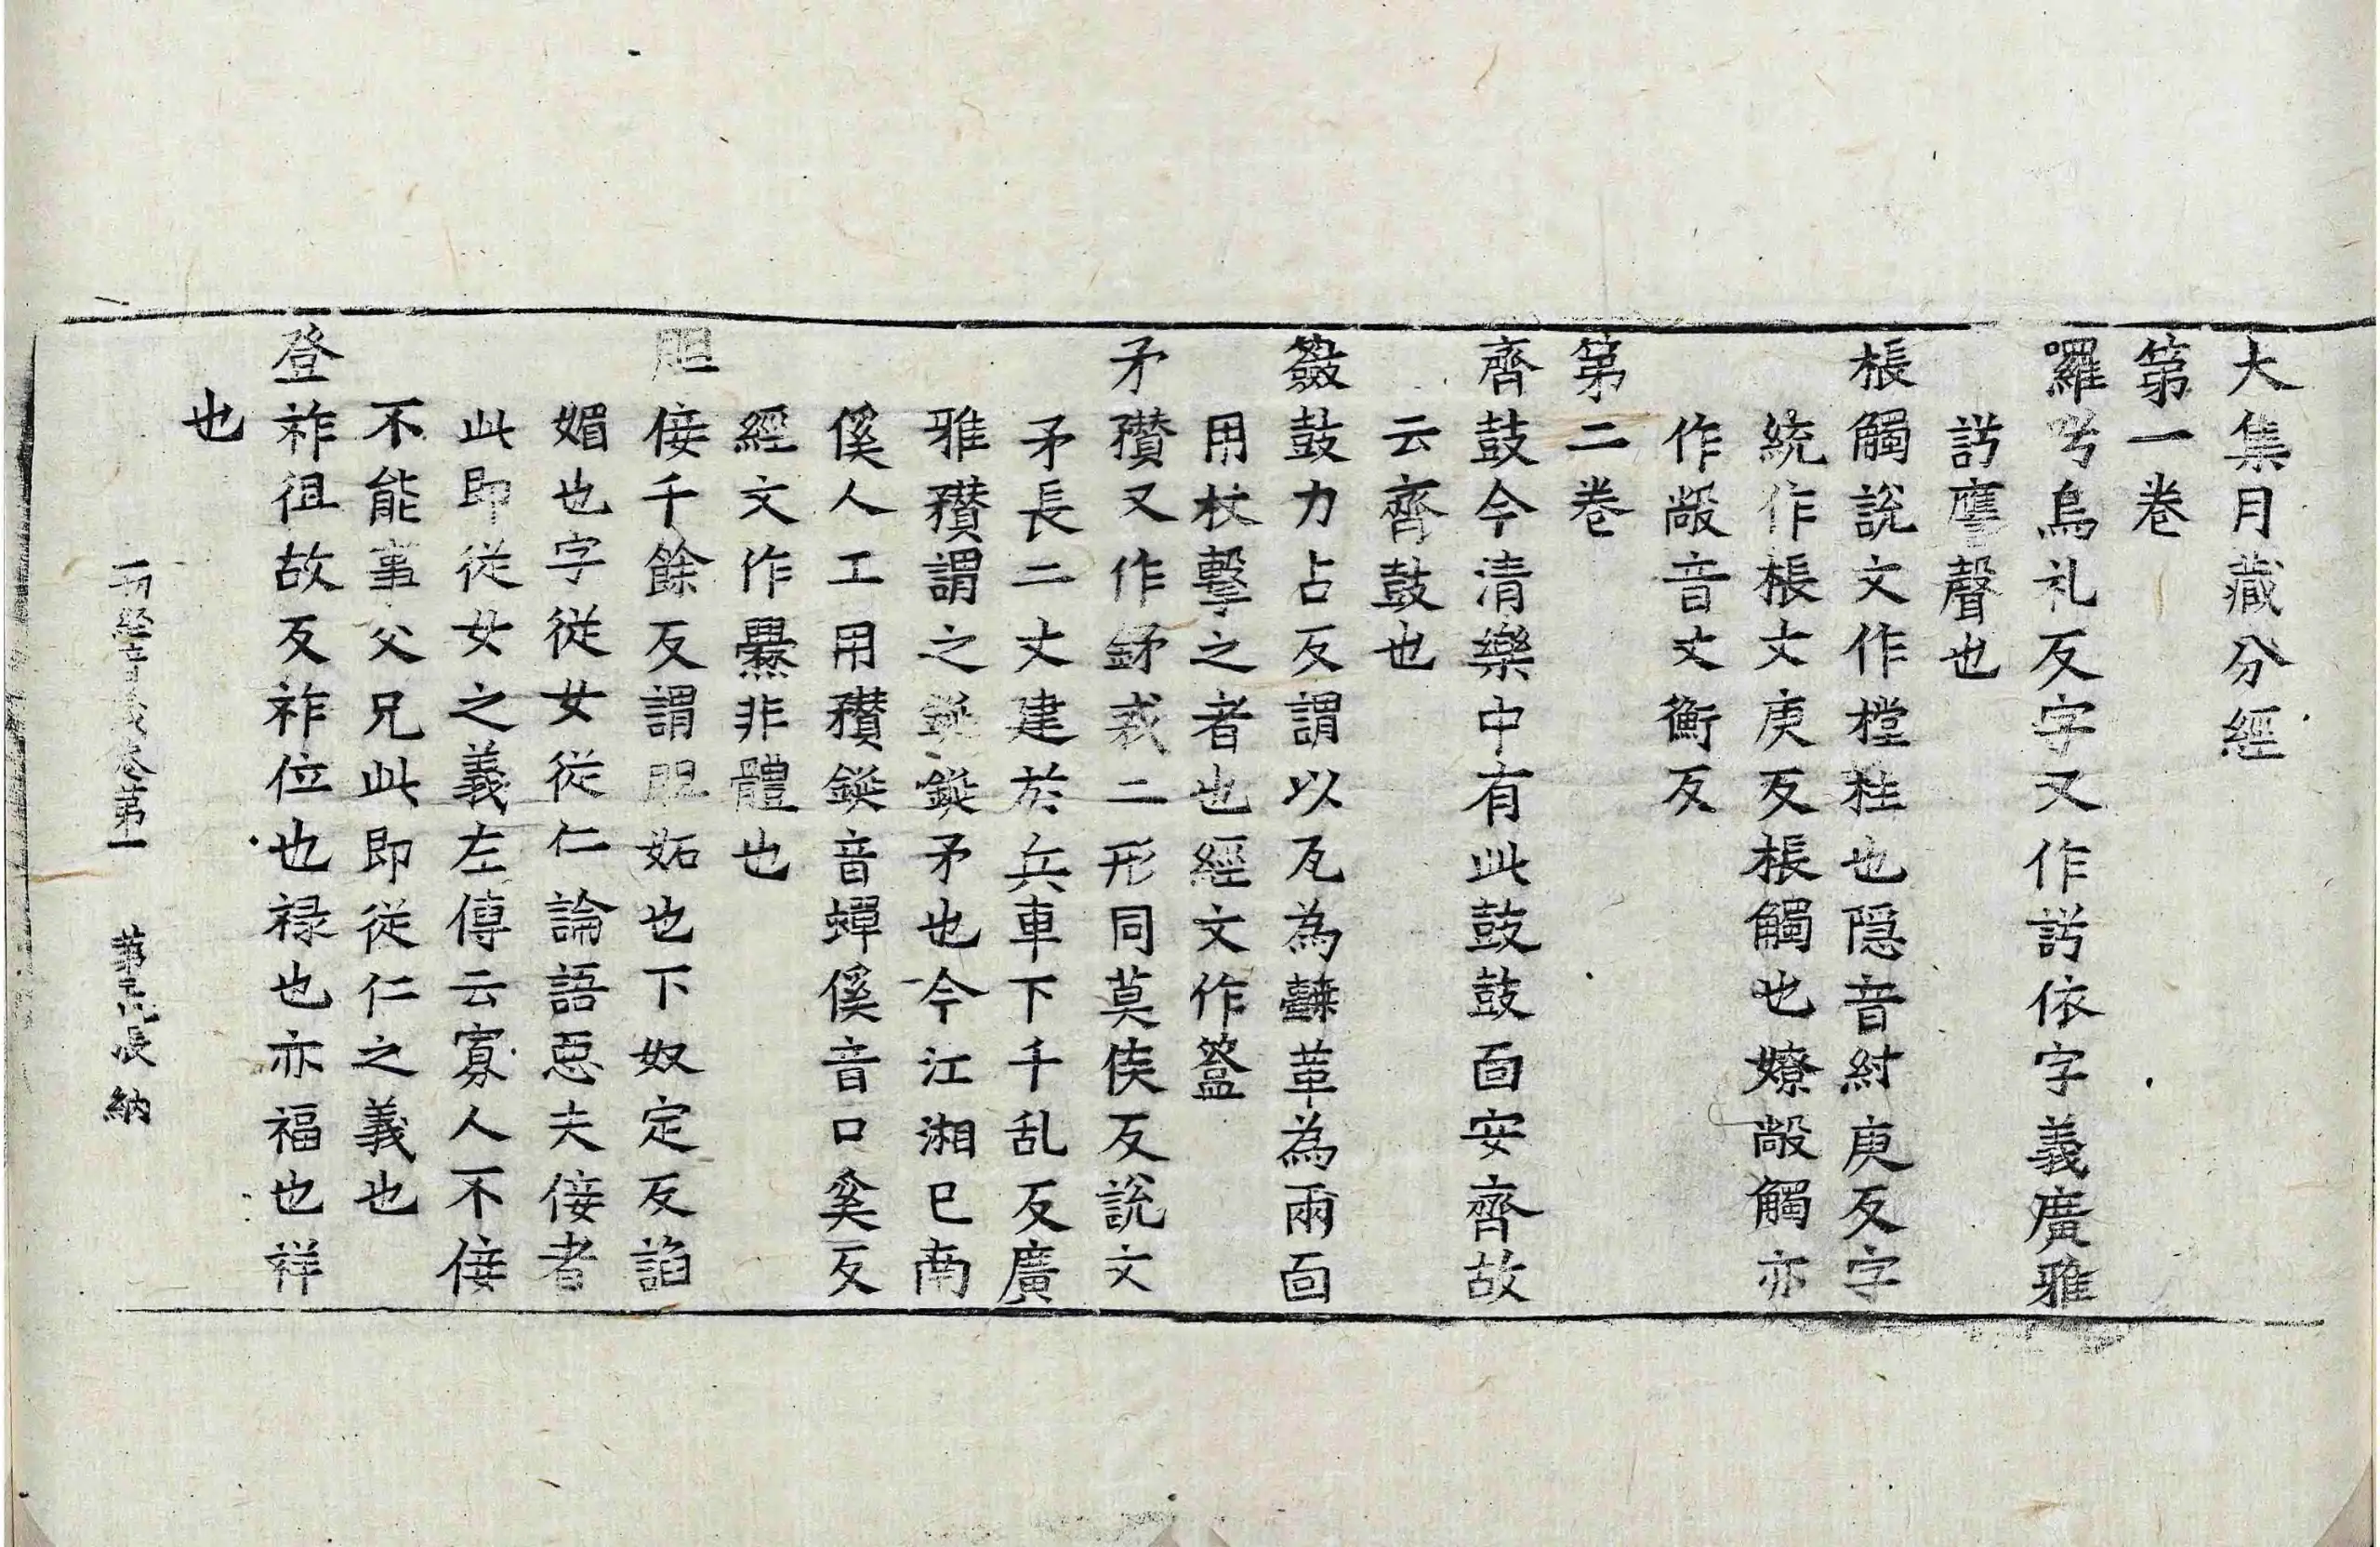 大集月藏分經
第一卷
囉兮烏礼反字又作詣依字義廣雅
詣譍聲也
棖觸說文作樘柱也隠音紂庚反字
統作棖丈庚反棖觸也嫽敞觸亦
作敞音丈衡反
第二卷
齊鼓今清樂中有此鼓鼓面安齊故
云齊鼓也
籢鼓力占反謂以瓦為𪔣革為兩面
用杖擊之者也經文作簽
矛穳又作鉾𢦧二形同莫侯反說文
矛長二丈建於兵車下千乱反廣
雅穳謂之鋋鋋矛也今江湘已南
傒人工用穳鋋音蟬傒音口奚反
經文作爨非體也
佞千餘反謂妬也下奴定反諂
媚也字従女従仁論語惡夫佞者
此即従女之義左傳云寡人不佞
不能事父兄此即従仁之義也
登祚徂故反祚位也禄也亦福也祥
也
一切經音義卷第一 第 張 納